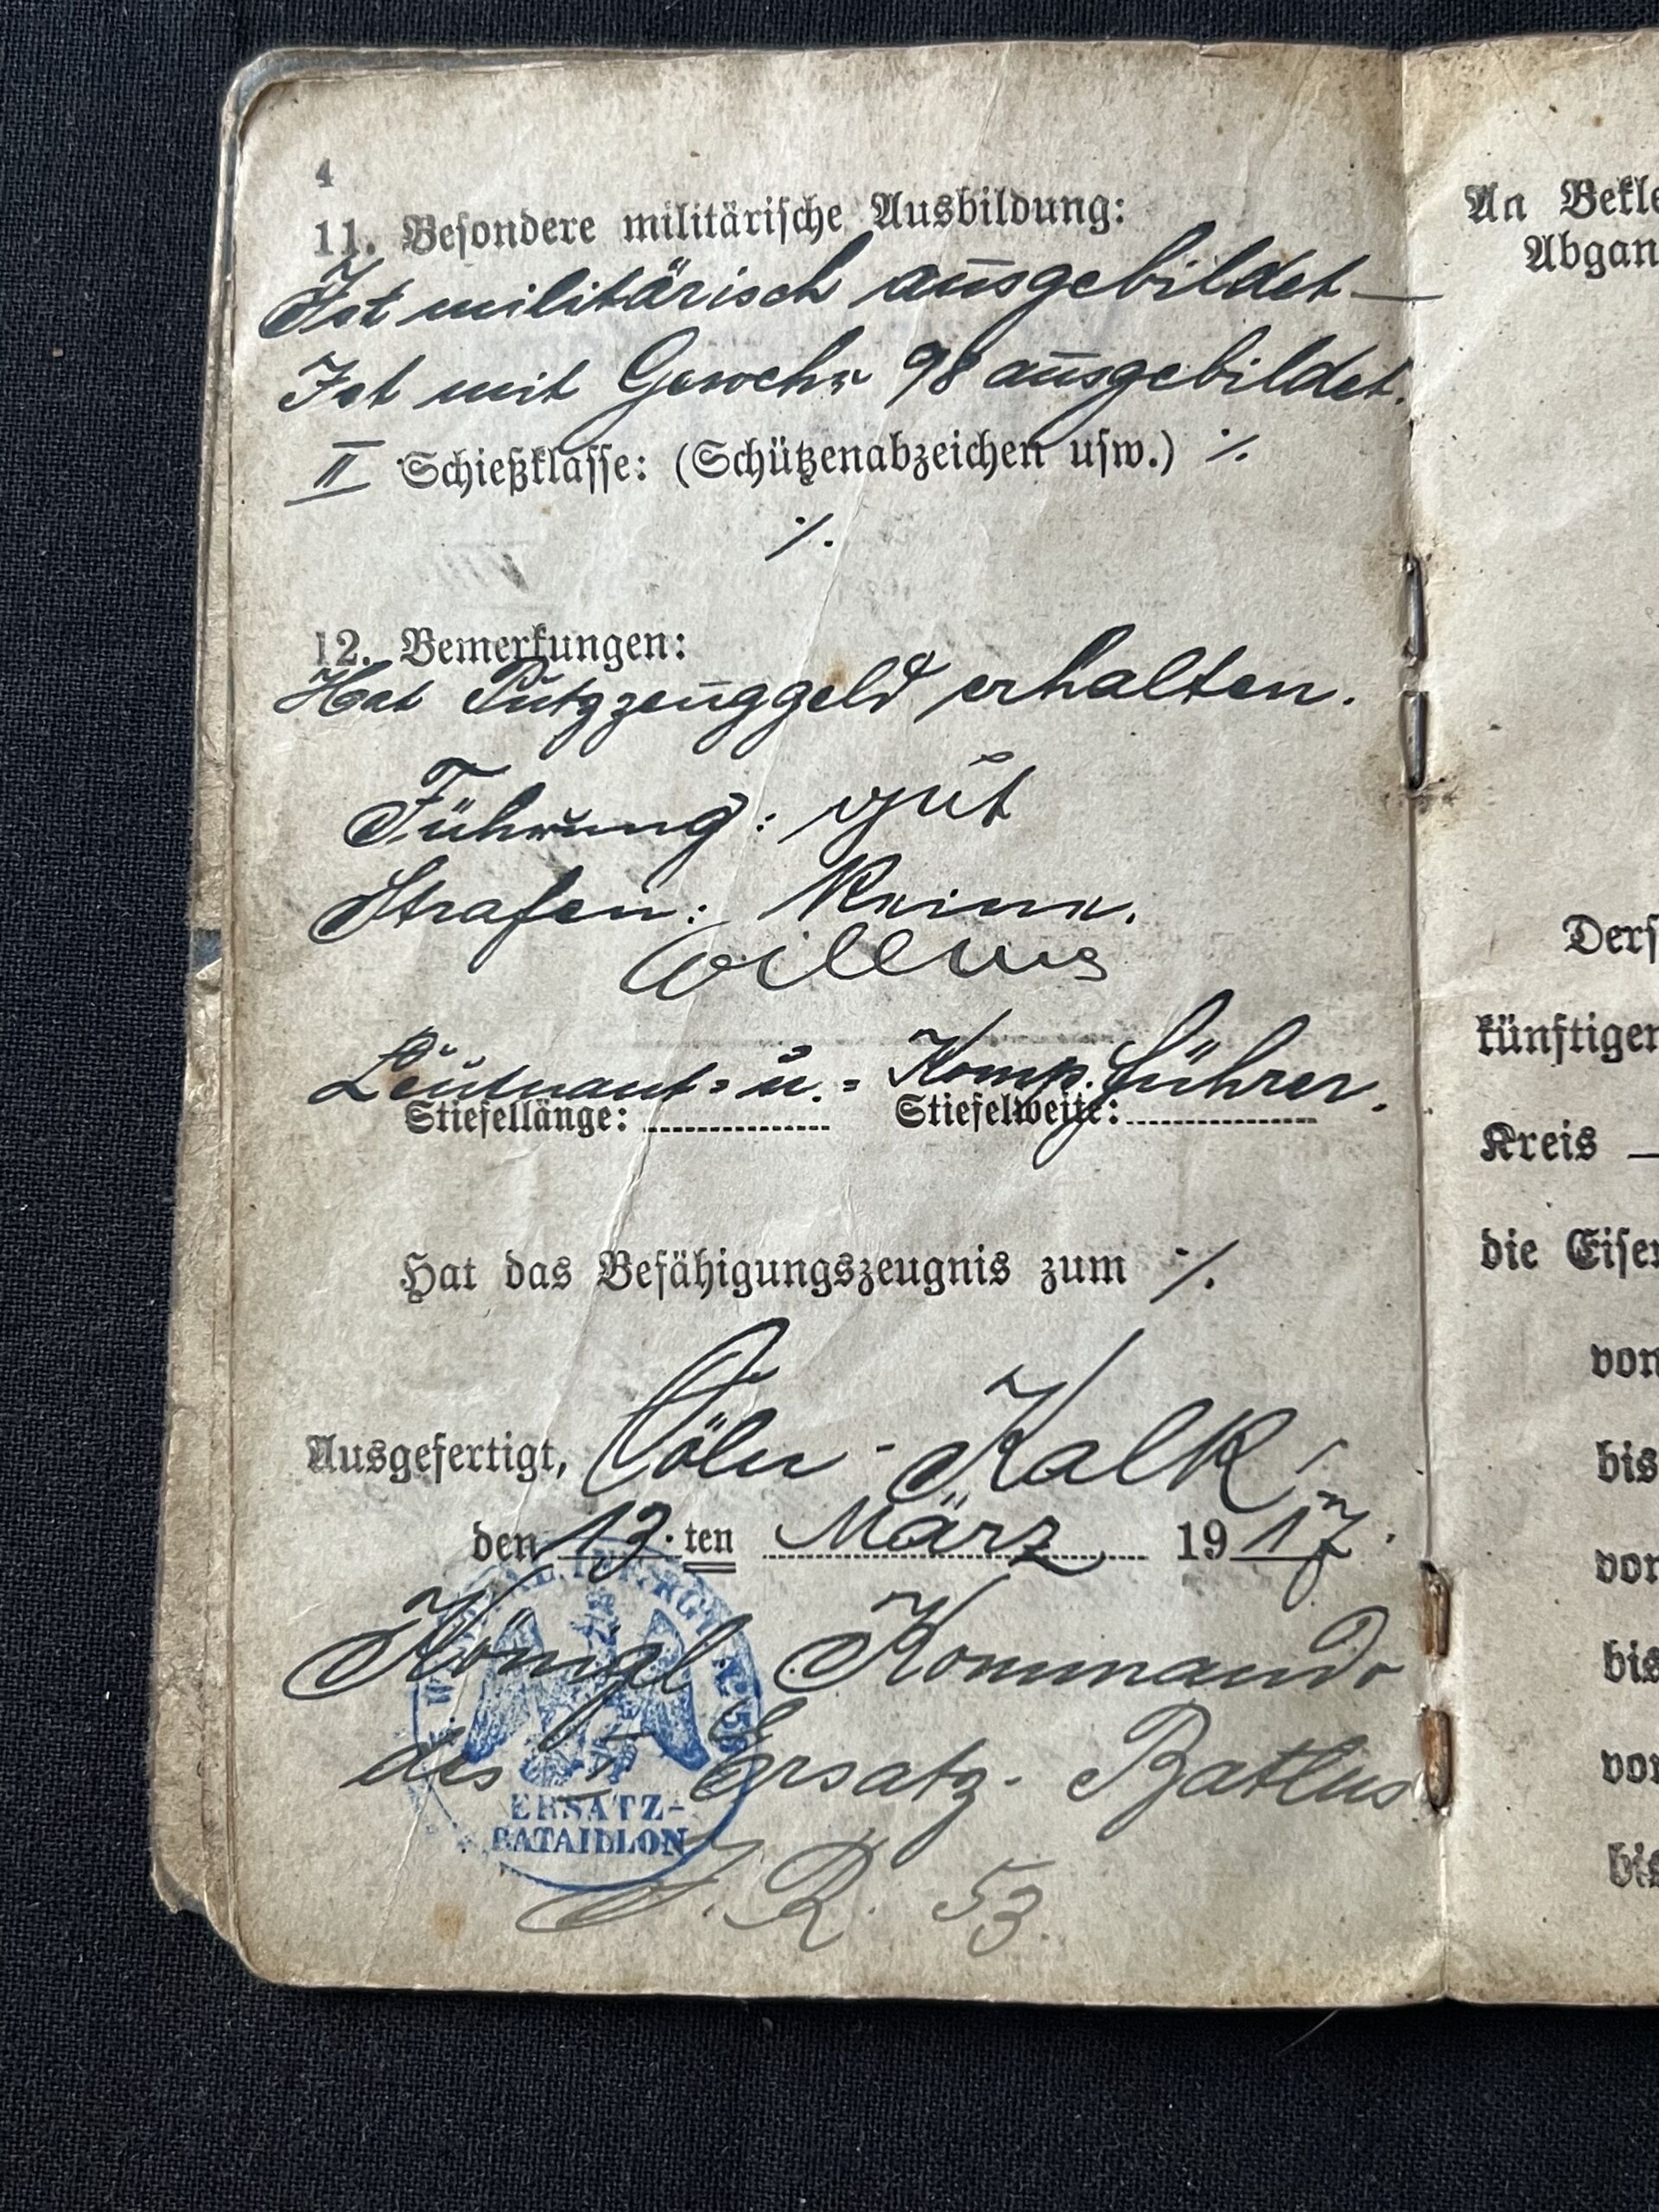 4
11. Besondere militärische Ausbildung:
Ist militärisch ausgebildet —
Ist mit Gewehr 98 ausgebildet.
II Schießklasse: (Schützenabzeichen usw.) ·/.
·/.
12. Bemerkungen:
Hat Putzzeuggeld erhalten.
Führung: gut
Strafen: Keine.
Willms
Leutnant = u. = Komp. führer.
Stiefellänge: Stiefelweite:
Hat das Befähigungszeugnis zum ·/.
Ausgefertigt, Cöln - Kalk,
den 13. ten März 1917.
Königl Kommando
des Ersatz- Batlns
ERSATZ-
BATAILLON
I. R. 53.
An Bekle
Abgan
Ders
künftigen
Kreis
die Eisen
von
bis
von
bis
von
bis